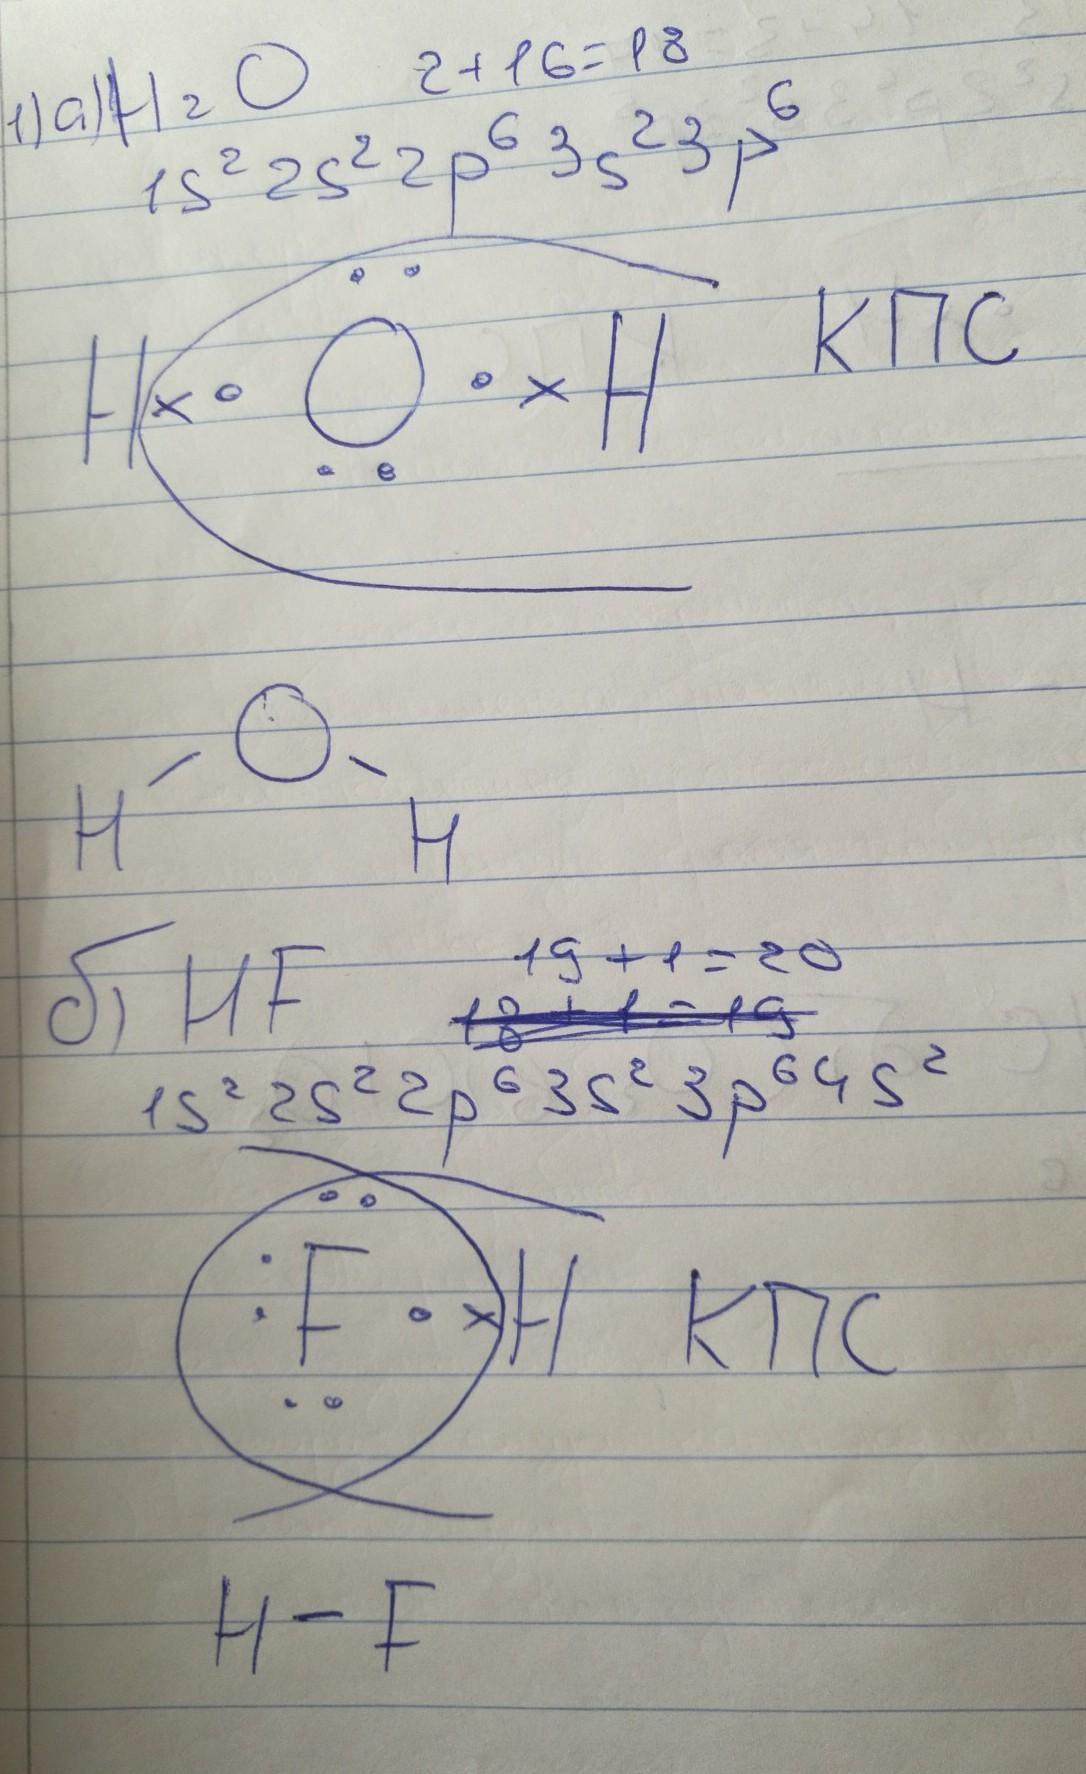 1) а) H₂O 2+16=18
1s² 2s² 2p⁶ 3s² 3p⁶
H x • O • x H КПС
O
H H
б) HF 19+1=20
18+1=19
1s² 2s² 2p⁶ 3s² 3p⁶ 4s²
F • x H КПС
H – F